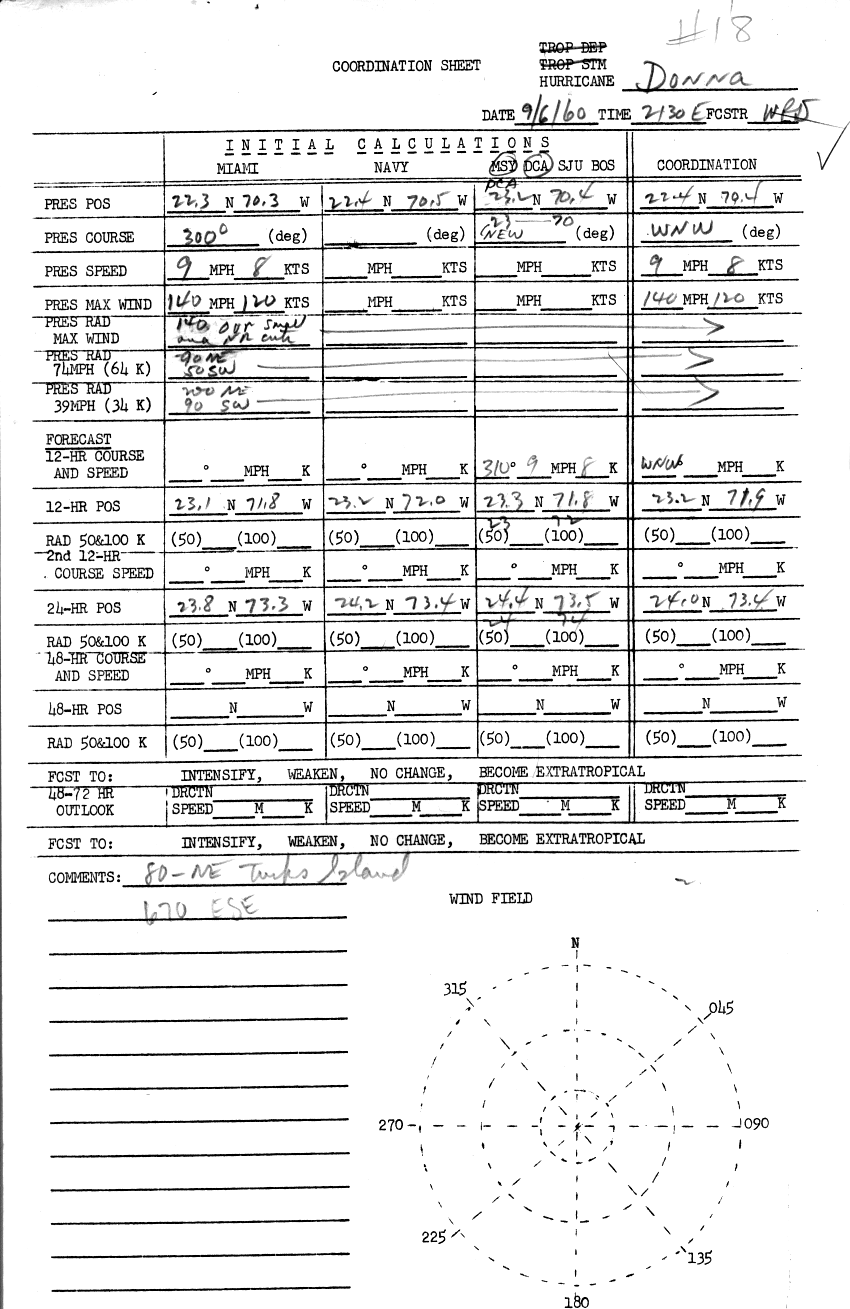 #18
TROP DEP
COORDINATION SHEET TROP STM
HURRICANE Donna
DATE 9/6/60 TIME 2130 E FCSTR
INITIAL CALCULATIONS
MIAMI NAVY MSY DCA SJU BOS COORDINATION
DCA
PRES POS 22.3 N 70.3 W 22.4 N 70.5 W 23.2 N 70.4 W 22.4 N 70.4 W
23 70
PRES COURSE 300° (deg) (deg) NEW (deg) WNW (deg)
PRES SPEED 9 MPH 8 KTS MPH KTS MPH KTS 9 MPH 8 KTS
PRES MAX WIND 140 MPH 120 KTS MPH KTS MPH KTS 140 MPH 120 KTS
PRES RAD 140 ovr small
MAX WIND area NR cntr
PRES RAD 90 NE
74MPH (64 K) 50 SW
PRES RAD 200 NE
39MPH (34 K) 90 SW
FORECAST
12-HR COURSE
AND SPEED ° MPH K ° MPH K 310° 9 MPH 8 K WNW MPH K
12-HR POS 23.1 N 71.8 W 23.2 N 72.0 W 23.3 N 71.8 W 23.2 N 71.9 W
23 72
RAD 50&100 K (50) (100) (50) (100) (50) (100) (50) (100)
2nd 12-HR
. COURSE SPEED ° MPH K ° MPH K ° MPH K ° MPH K
24-HR POS 23.8 N 73.3 W 24.2 N 73.4 W 24.4 N 73.5 W 24.0 N 73.4 W
24 74
RAD 50&100 K (50) (100) (50) (100) (50) (100) (50) (100)
48-HR COURSE
AND SPEED ° MPH K ° MPH K ° MPH K ° MPH K
48-HR POS N W N W N W N W
RAD 50&100 K (50) (100) (50) (100) (50) (100) (50) (100)
FCST TO: INTENSIFY, WEAKEN, NO CHANGE, BECOME EXTRATROPICAL
48-72 HR DRCTN DRCTN DRCTN DRCTN
OUTLOOK SPEED M K SPEED M K SPEED M K SPEED M K
FCST TO: INTENSIFY, WEAKEN, NO CHANGE, BECOME EXTRATROPICAL
COMMENTS: 80-NE Turks Island
670 ESE
WIND FIELD
N
315
045
270
090
225
135
180